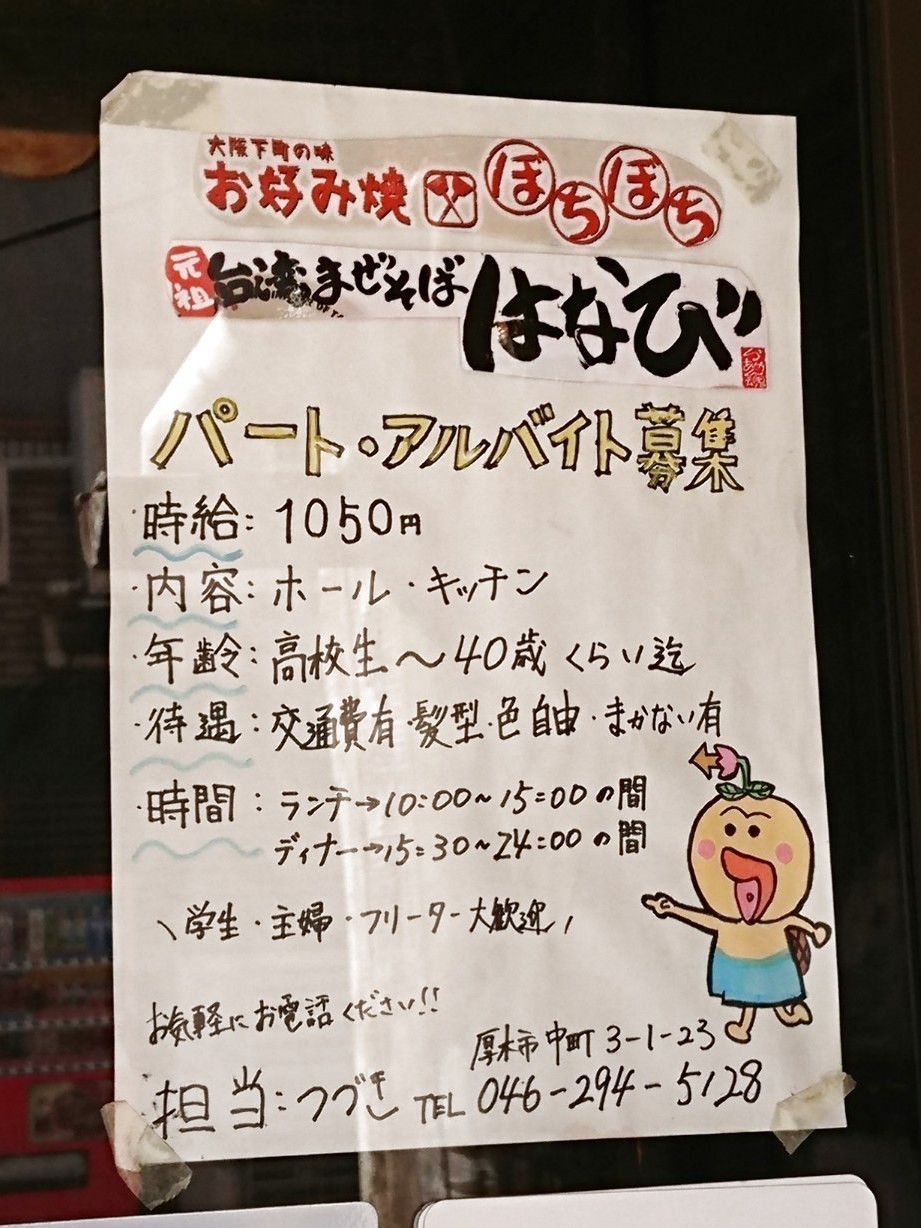 大阪下町の味
お好み焼 ぼちぼち
元祖 台湾まぜそば はなび
パート・アルバイト募集
・時給:1050円
・内容:ホール・キッチン
・年齢:高校生〜40歳くらい迄
・待遇:交通費有・髪型・色自由・まかない有
・時間:ランチ→10:00〜15:00の間
ディナー→15:30〜24:00の間
\学生・主婦・フリーター大歓迎/
お気軽にお電話ください!!
厚木市中町3-1-23
担当:つづき TEL 046-294-5128